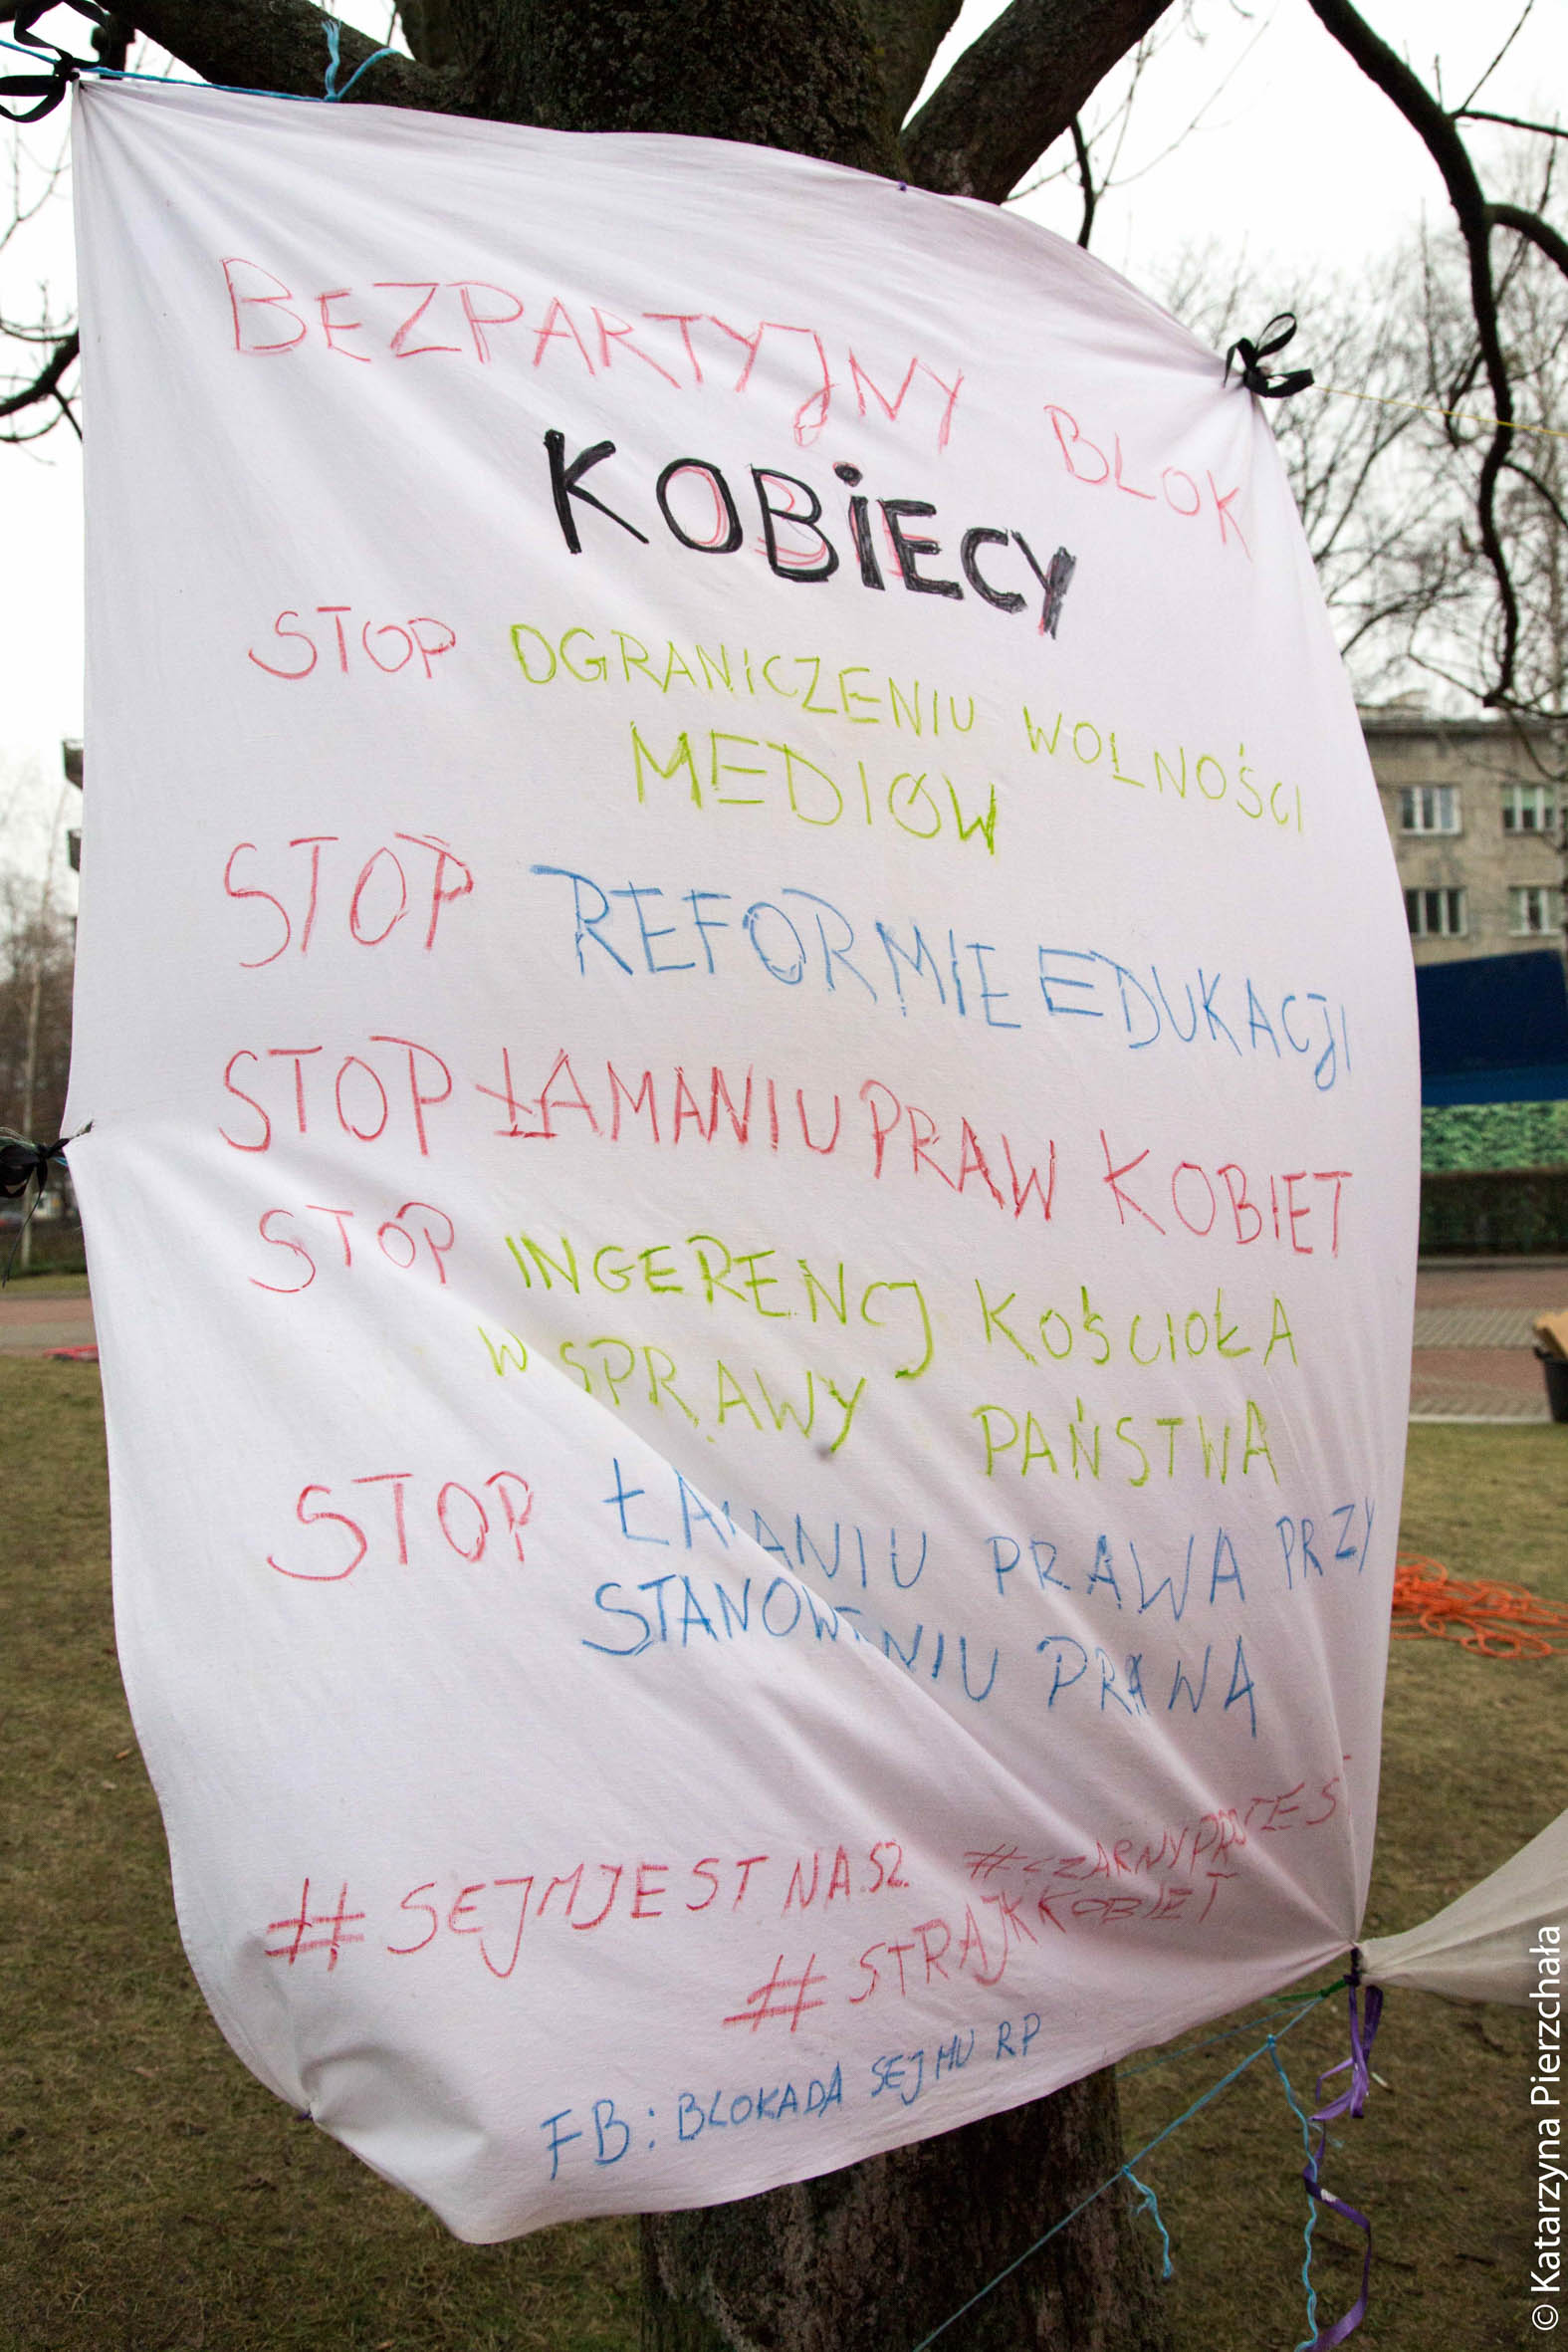 BEZPARTYJNY BLOK
KOBIECY
STOP OGRANICZENIU WOLNOŚCI
MEDIÓW
STOP REFORMIE EDUKACJI
STOP ŁAMANIU PRAW KOBIET
STOP INGERENCJ KOŚCIOŁA
W SPRAWY PAŃSTWA
STOP ŁAMANIU PRAWA PRZY
STANOWIENIU PRAWA
#SEJMJESTNASZ #CZARNYPROTES
#STRAJKKOBIET
FB: BLOKADA SEJMU RP
© Katarzyna Pierzchała